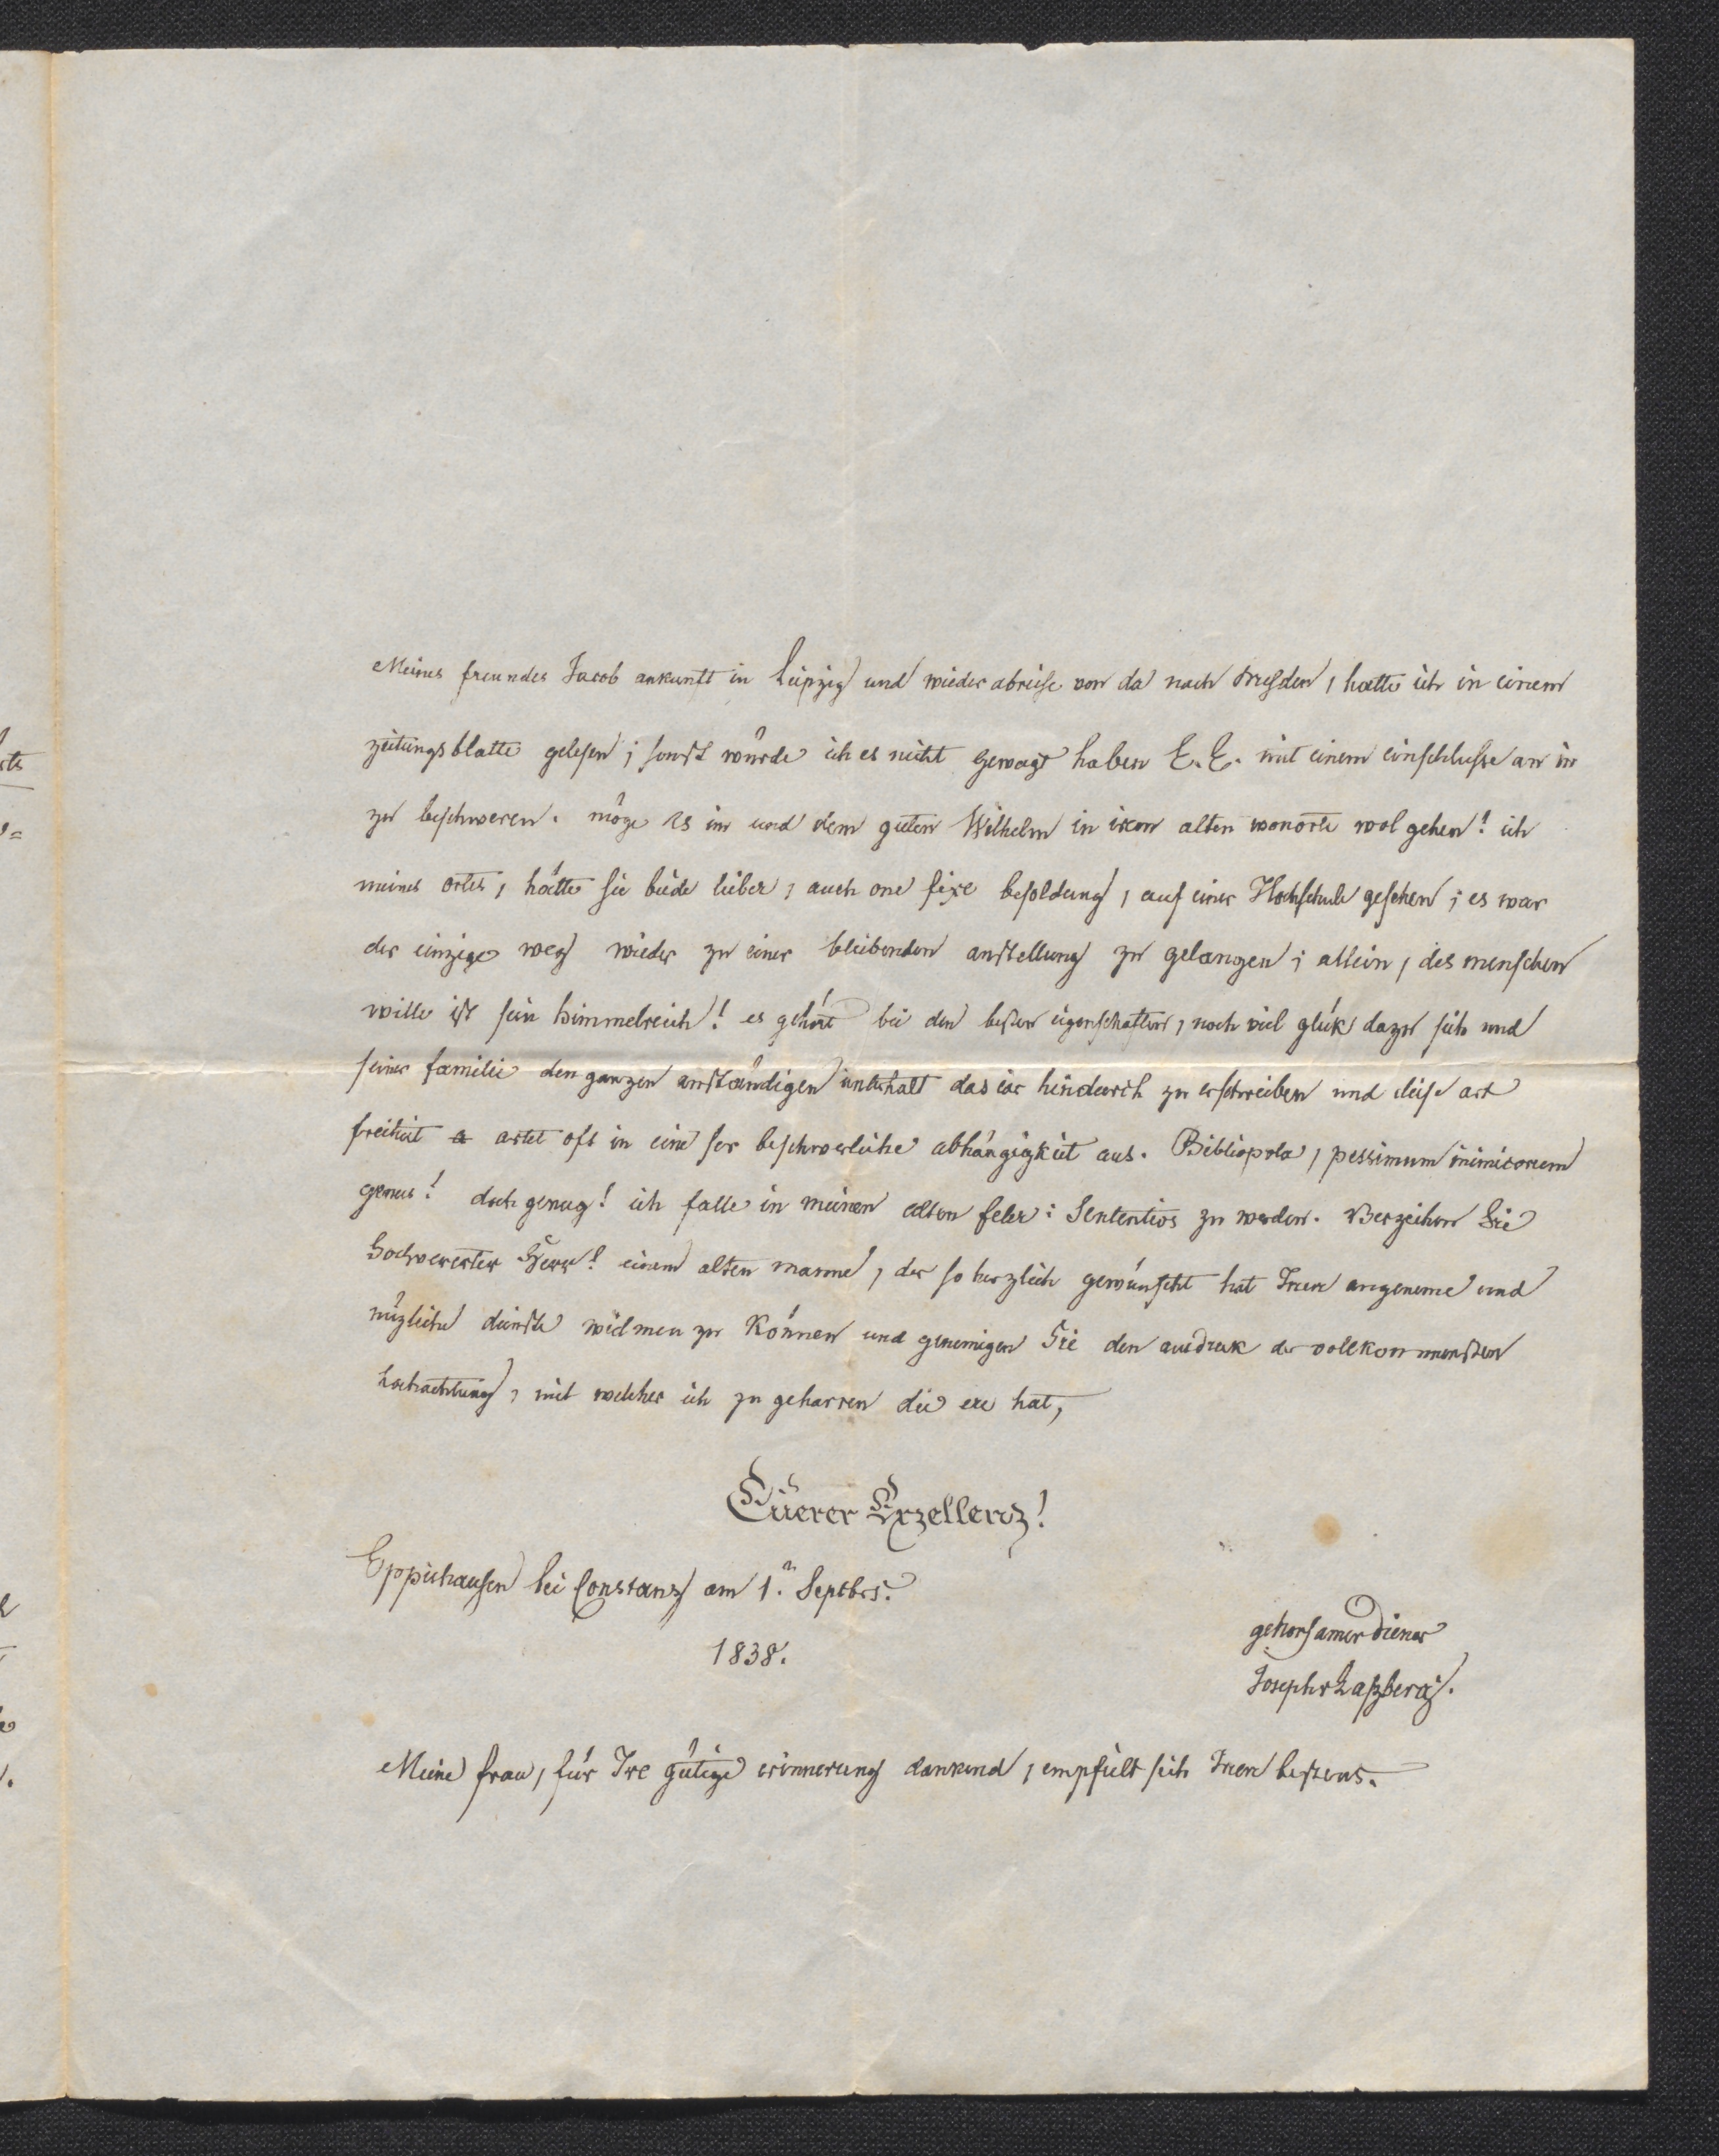 Meines freundes Jacob ankunft in Leipzig und wieder abreise von da nach Dresden, hatte ich in einem
zeitungsblatte gelesen; sonst würde ich es nicht gewagt haben E. E. mit einem einschlusse an in
zu beschweren. möge es im und dem guten Wilhelm in irem alten wonorte wol gehen! ich
meines ortes, hätte sie beide lieber, auch one fixe besoldung, auf einer Hochschule gesehen; es war
der einzige weg wieder zu einer bleibenden anstellung zu gelangen; allein, des menschen
wille ist sein himmelreich! es gehört bei den besten eigenschaften, noch viel glük dazu sich und
seiner familie den ganzen anständigen unterhalt das iar hindurch zu erschreiben und diese art
freiheit a artet oft in eine ser beschwerliche abhängigkeit aus. Bibliopola, pessimum inimicorum
genus! doch genug! ich falle in meinen alten feler: Sententios zu werden. Verzeihen Sie
hochvererter Herr! einem alten manne, der so herzlich gewünscht hat Inen angeneme und
nüzliche dienste widmen zu können und genemigen Sie den ausdruk der vollkommensten
hochachtung, mit welcher ich zu geharren die ere hat,
Eüerer Exzellenz!
Eppishausen bei Constanz am 1.n Septbrs.
1838.
gehorsamer Diener
Joseph v Laßberg.
Meine frau, für Ire gütige erinnerung dankend, empfielt sich Inen bestens.